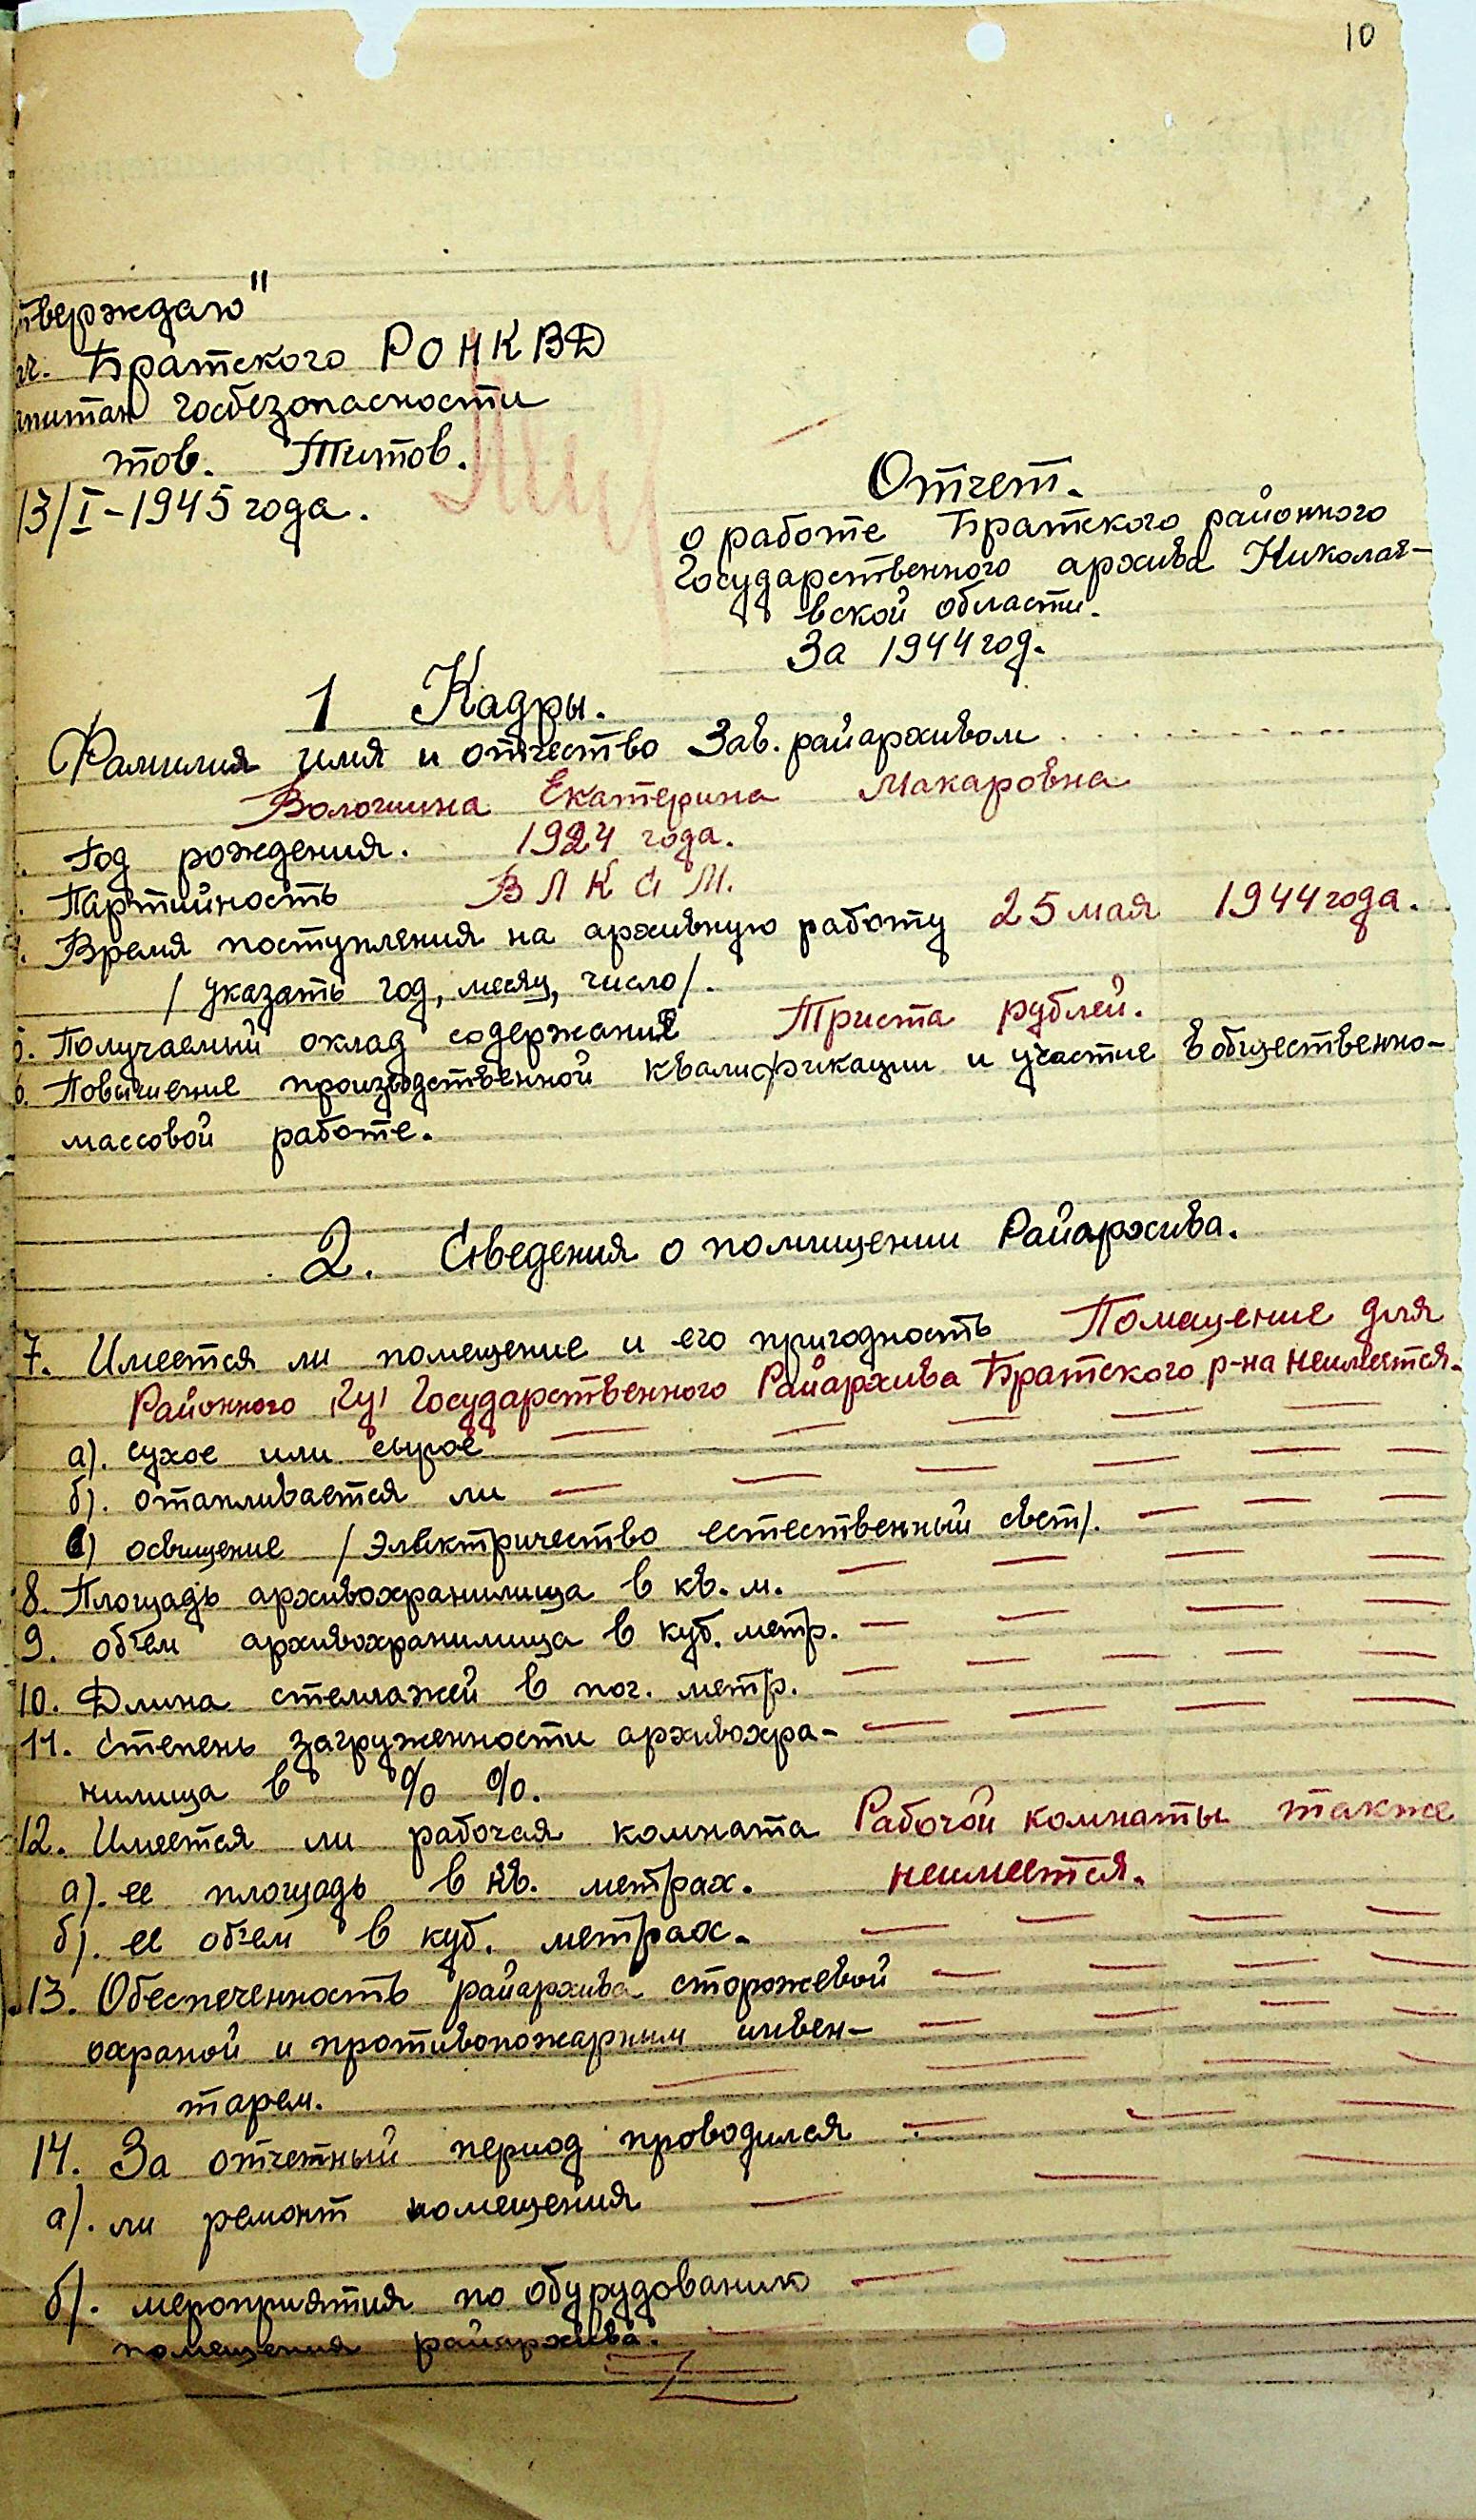 10
тверждаю"
ч. Братского РОНКВД
питан госбезопасности
тов. Титов.
13/I-1945 года.
Отчет.
о работе Братского районного
Государственного архива Николае-
вской области.
За 1944 год.
1 Кадры.
Фамилия имя и отчество Зав. райархивом . . . . . . . . . . .
Волошина Екатерина Макаровна
. Год рождения. 1924 года.
. Партийность В Л К С М.
. Время поступления на архивную работу 25 мая 1944 года.
/ указать год, месяц, число/.
5. Получаемый оклад содержание Триста рублей.
6. Повышение производственной квалификации и участие в общественно-
массовой работе.
2. Сведения о помищении Райархива.
7. Имеется ли помещение и его пригодность Помещение для
Районного Государственного Райархива Братского р-на неимеется.
а). сухое или сырое — — — — —
б). отапливается ли — — — — — —
в) освищение / Электричество естественный свет/. — — —
8. Площадь архивохранилища в кв. м. — — — —
9. об'ем архивохранилища в куб. метр. — — — —
10. Длина стеллажей в пог. метр. — — — — —
11. Степень загруженности архивохра- — — — —
нилища в % %.
12. Имеется ли рабочая комната Рабочой комнаты также
а). ее площадь в кв. метрах. неимеется.
б). ее об'ем в куб. метрах. — — — — —
13. Обеспеченность райархива сторожевой — — — —
охраной и противопожарным инвен- — — — —
тарем. — — — —
14. За отчетный период проводился — — —
а). ли ремонт помещения — — —
б). мероприятия по обурудованию — — —
помещения райархива. — — —